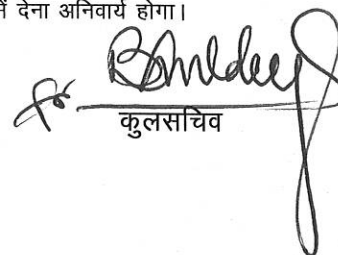 में देना अनिवार्य होगा।
for
कुलसचिव